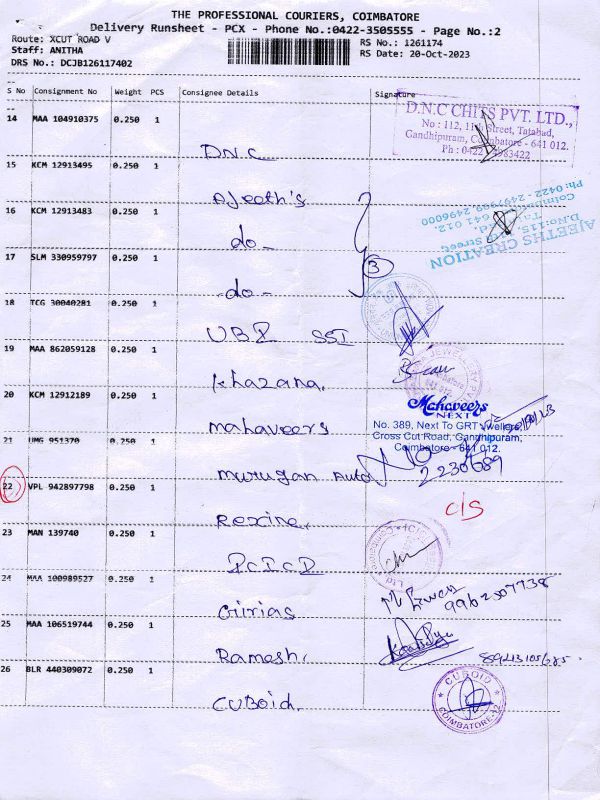 THE PROFESSIONAL COURIERS, COIMBATORE
Delivery Runsheet - PCX - Phone No.:0422-3505555 - Page No.:2
Route: XCUT ROAD V
RS No.: 1261174
Staff: ANITHA
RS Date: 20-Oct-2023
DRS No.: DCJB126117402
S No Consignment No Weight PCS Consignee Details Signature
14 MAA 104910375 0.250 1
D.N.C
D.N.C CHITS PVT. LTD.,
No : 112, 11th Street, Tatabad,
Gandhipuram, Coimbatore - 641 012.
15 KCM 12913495 0.250 1
Ajeeth's
16 KCM 12913483 0.250 1
do-
AJEETHS CREATION
17 SLM 330959797 0.250 1
-do-
3
18 TCG 30040281 0.250 1
UBI SSI
19 MAA 862059128 0.250 1
khazana.
20 KCM 12912189 0.250 1
mahaveers
Mahaveers
NEXT
No. 389, Next To GRT Jwellers,
Cross Cut Road, Gandhipuram,
Coimbatore - 641 012.
21 UMG 951370 0.250 1
murugan Auto
2230689
22 VPL 942897798 0.250 1
Rexine,
C/S
23 MAN 139740 0.250 1
PCICD
24 MAA 100989527 0.250 1
Girias
25 MAA 106519744 0.250 1
Ramesh,
26 BLR 440309072 0.250 1
CUBoid.
CUBOID
COIMBATORE-12